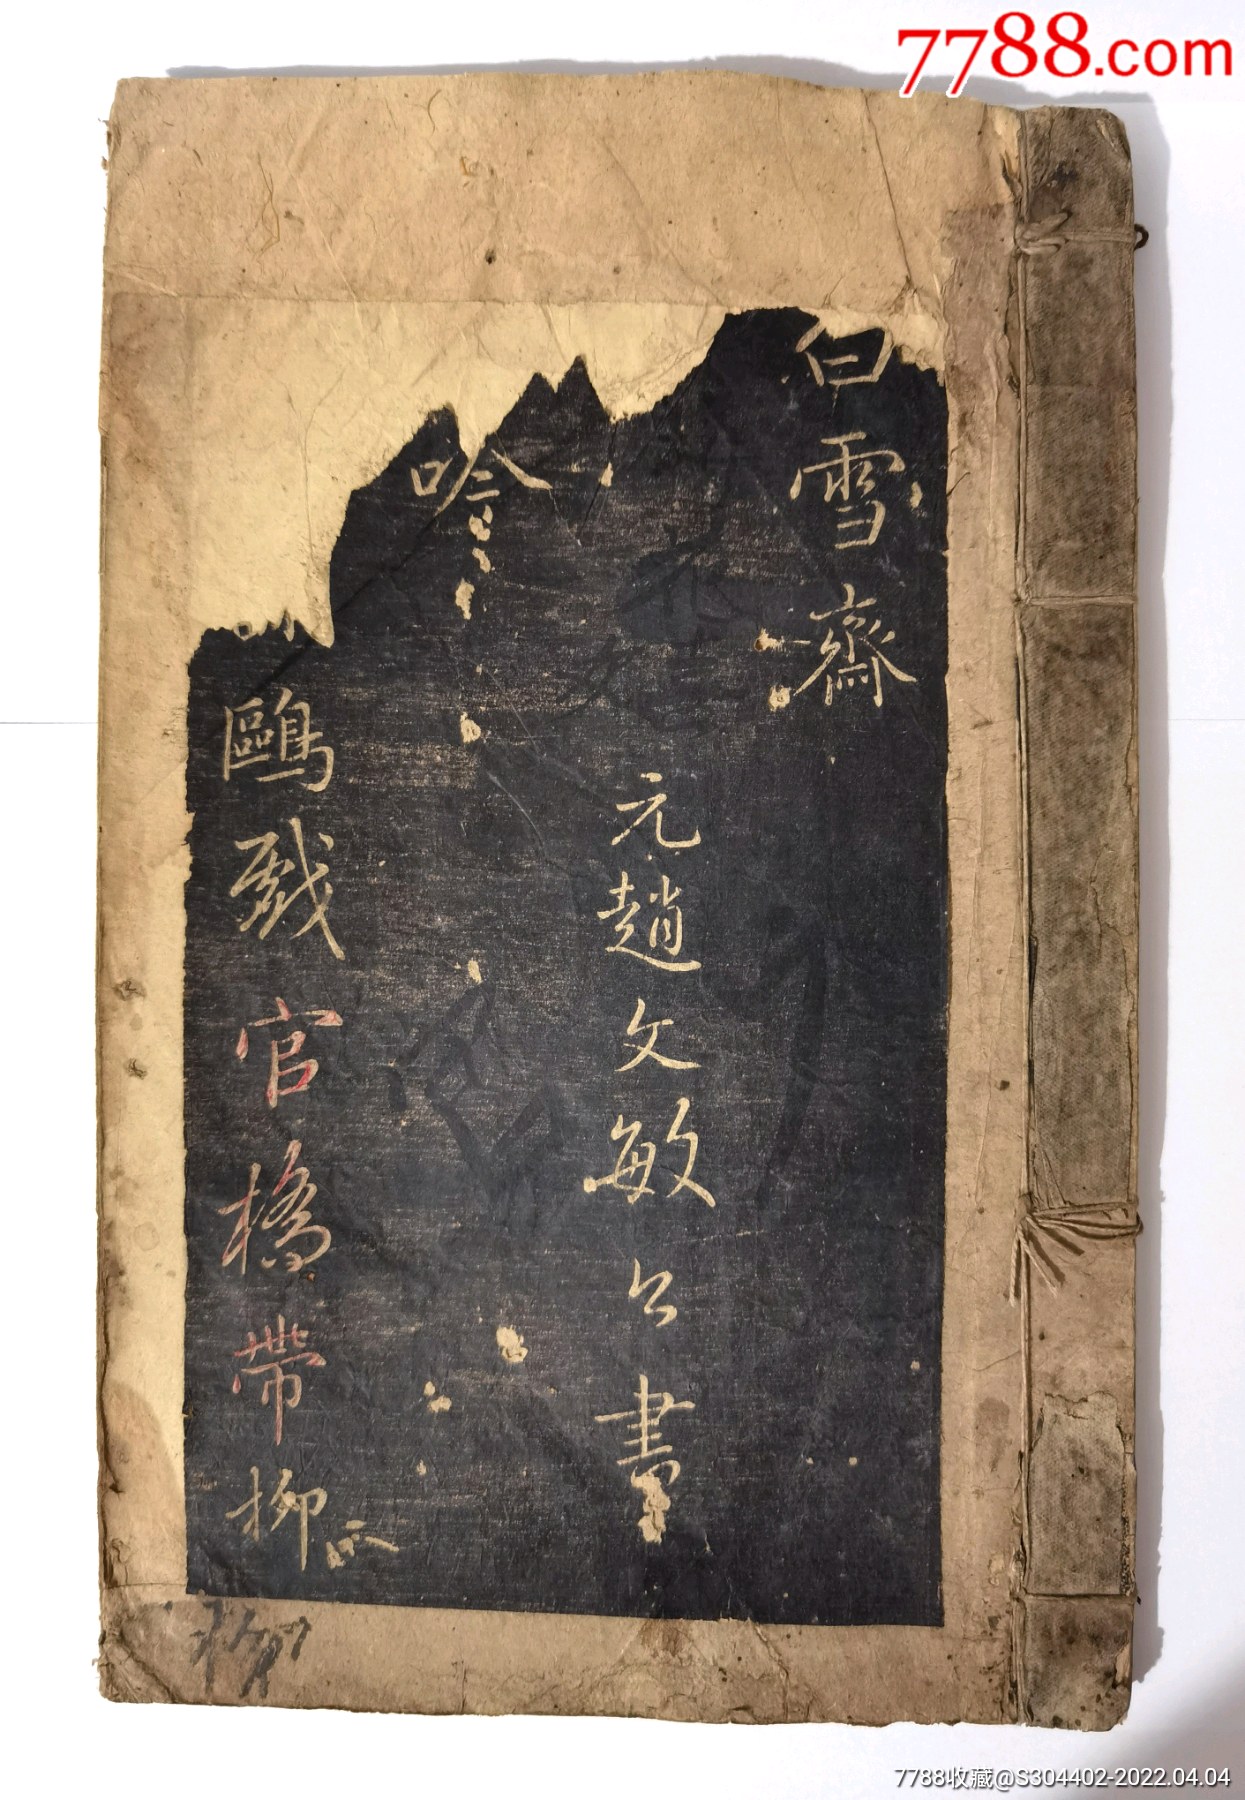 7788.com
白雪齋
元趙文敏公書
吟
鷗戲官橋帶柳
柳
7788收藏@S304402-2022.04.04